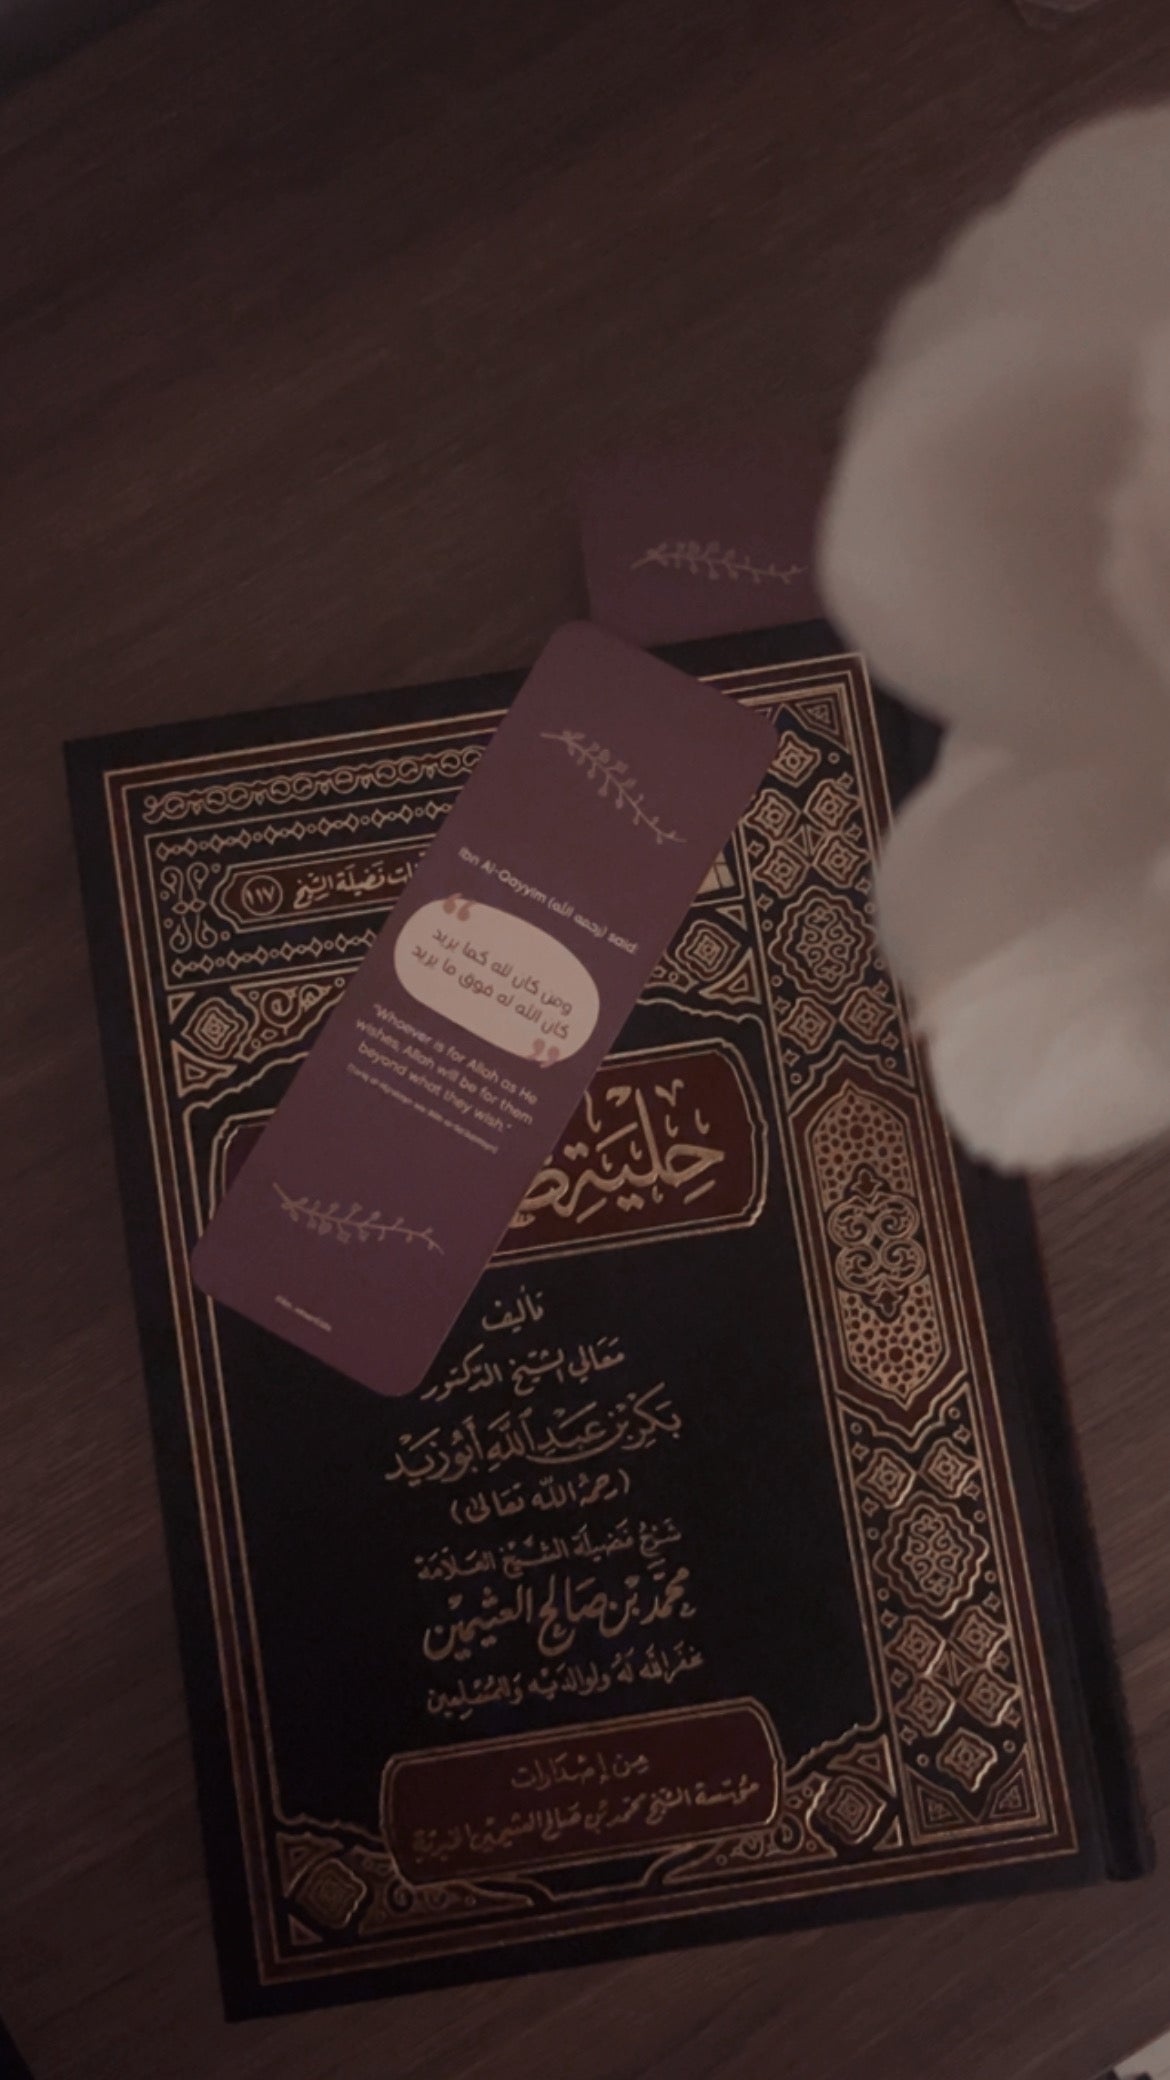 فضيلة الشيخ ١١٧
Ibn Al-Qayyim (رحمه الله) said:
ومن كان لله كما يريد
كان الله له فوق ما يريد
"Whoever is for Allah as He
wishes, Allah will be for them
beyond what they wish."
حِلْيَة
تأليف
مَعَالي الشيخ الدكتور
بَكْر بْن عَبْدِ اللَّهِ أَبُو زَيْد
(رحمه الله تعالى)
شَرْح فَضيلَة الشَّيْخ العَلّامَة
محمَّد بْن صَالح العثيمين
غفَر الله لَهُ ولوالدَيْه وَللمُسْلِمين
مِن إصْدَارات
مؤسّسة الشيخ محمّد بْن صَالح العثيمين الخيرية